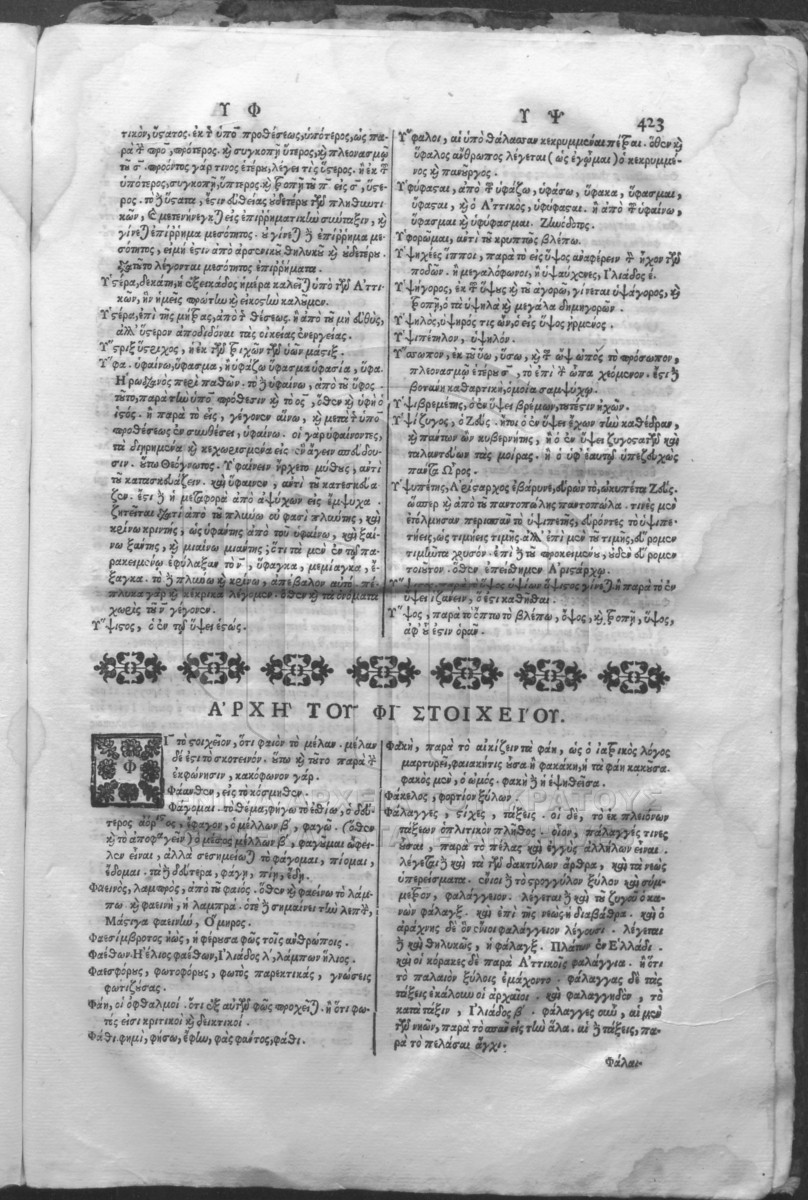 Υ Φ
Υ Ψ
423
τικὸν, ὕστατος. ἐκ τ ὑπὸ προθέσεως, ὑπότερος, ὡς πα-
ρὰ τ πρὸ, πρότερος. κỳ συγκοπῇ ὕτερος, κỳ πλεονασμῷ
τοῦ σ. προόντος γάρ τινος ἑτέρου, λέγει τὶς ὕστερος. ἢ ἐκ τ
ὑπότερος, συγκοπῇ, ὕπτερος, κỳ τροπῇ τοῦ π εἰς σ, ὕσε-
ρος. τὸ ὕστατα, ἔστιν εὐθείας οὐδετέρου τῶν πληθυντι-
κῶν, καὶ μετενήνεγκται εἰς ἐπιρρηματικὴν σύνταξιν, κỳ
γίνεται ἐπίρρημα μεσότητος. ἐπίρρημα με-
σότητος, εἰ μή ἐστιν ἀπὸ ἀρσενικοῦ θηλυκοῦ κỳ οὐδετέρου.
διὰ τοῦτο λέγονται μεσότητος ἐπιρρήματα.
Ὑστέρα, δεκάτη, ἡ ἐξεικάδος ἡμέρα καλεῖται ὑπὸ τῶν Ἀττι-
κῶν, ἣν ἡμεῖς πρώτην κỳ εἰκοστὴν καλοῦμεν.
Ὑστέρα, ἐπὶ τῆς μήτρας, ἀπὸ τ θέσεως. ἢ ἀπὸ τοῦ μὴ εὐθὺς,
ἀλλ' ὕστερον ἀποδιδόναι τὰς οἰκείας ἐνεργείας.
Ὕστριξ ὕστριχος, ἡ ἐκ τῶν τριχῶν τῶν ὑῶν μάστιξ.
Ὕφα. ὑφαίνω, ὕφασμα, ἢ ὑφάζω ὕφασμα ὑφασία, ὕφα.
Ἡρωδιανὸς περὶ παθῶν. τὸ ὑφαίνω, ἀπὸ τοῦ ὕφος.
τοῦτο, παρὰ τὴν ὑπὸ πρόθεσιν κỳ τὸ ος, ὅθεν κỳ ὑφὴ ὁ
ἱστός. ἢ παρὰ τὸ εἷς, γέγονεν αἵνω, κỳ μετὰ τ ὑπὸ
προθέσεως ἐν συνθέσει, ὑφαίνω. οἱ γὰρ ὑφαίνοντες,
τὰ διῃρημένα κỳ κεχωρισμένα εἰς ἓν ἄγειν σπεύδου-
σιν. οὕτω Θεόγνωτος. Ὑφαίνειν ἤρχετο μύθους, ἀντὶ
τοῦ κατασκευάζειν. καὶ ὕφαινεν, ἀντὶ τοῦ κατεσκεύα-
ζεν. ἔστι ἡ μεταφορὰ ἀπὸ ἀψύχων εἰς ἔμψυχα.
ζητεῖται διατί ἀπὸ τοῦ πλύνω οὔ φασι πλύντης, καὶ
κρίνω κριντὴς, ὡς ὑφάντης ἀπὸ τοῦ ὑφαίνω, καὶ ξαί-
νω ξάντης, κỳ μιαίνω μιάντης; ὅτι τὰ μὲν ἐν τῷ πα-
ρακειμένῳ ἐφύλαξαν τὸ ν, ὕφαγκα, μεμίαγκα, ἔ-
ξαγκα. τὸ πλύνω κỳ κρίνω, ἀπέβαλον αὐτό. πέ-
πλυκα γὰρ κỳ κέκρικα λέγομεν. ὅθεν κỳ τὰ ὀνόματα
χωρὶς τοῦ ν γέγονεν.
Ὕψιστος, ὁ ἐν τῷ ὕψει ἑστώς.
Ὕφαλοι, αἱ ὑπὸ θάλασσαν κεκρυμμέναι πέτραι. ὅθεν κỳ
ὕφαλος ἄνθρωπος λέγεται (ὡς ἐγᾦμαι) ὁ κεκρυμμέ-
νος κỳ πανοῦργος.
Ὑφύφασται, ἀπὸ τ ὑφάζω, ὑφάσω, ὕφακα, ὕφασμαι,
ὕφασται, κỳ ὁ Ἀττικὸς, ὑφύφασται. ἢ ἀπὸ τ ὑφαίνω,
ὕφασμαι κỳ ὑφύφασμαι. Ζηνόδοτος.
Ὑφορῶμαι, ἀντὶ τοῦ κρυπτῶς βλέπω.
Ὑψηχέες ἵπποι, παρὰ τὸ εἰς ὕψος ἀναφέρειν τ ἦχον τῶν
ποδῶν. ἢ μεγαλόφωνοι, ἢ ὑψαύχενες, Ἰλιάδος ε.
Ὑψήγορος, ἐκ τ ὕψους κỳ τοῦ ἀγορῶ, γίνεται ὑψάγορος, κỳ
τροπῇ, ὁ τὰ ὑψηλὰ κỳ μεγάλα δημηγορῶν.
Ὑψηλὸς, ὑψηρός τις ὢν, ὁ εἰς ὕψος ἠρμένος.
Ὑψιπέτηλον, ὑψηλόν.
Ὕσσωπον, ἐκ τοῦ ὕω, ὕσω, κỳ τ ὢψ ὠπὸς τὸ πρόσωπον,
πλεονασμῷ ἑτέρου σ, τὸ ἐπὶ τ ὦπα χεόμενον. ἔστι
βοτάνη καθαρτικὴ, ὁμοία σαμψύχῳ.
Ὑψιβρεμέτης, ὁ ἐν ὕψει βρέμων, τουτέστιν ἠχῶν.
Ὑψίζυγος, ὁ Ζεύς. ἤτοι ὁ ἐν ὕψει ἔχων τὴν καθέδραν,
κỳ πάντων ὢν κυβερνήτης, ἢ ὁ ἐν ὕψει ζυγοστατῶν καὶ
ταλαντεύων τὰς μοίρας. ἢ ὁ ὑφ' ἑαυτῷ ὑπεζευχὼς
πάντα Ὦρος.
Ὑψιπέτης, Ἀρίσταρχος ἐβάρυνε, εὑρὼν τὸ, ὠκυπέτα Ζεῦς.
ὥσπερ κỳ ἀπὸ τοῦ παντοπώλης παντοπῶλα. τινὲς μὲν
ἐτόλμησαν περισπᾶσαι τὸ ὑψιπέτης, εὑρόντες τὸ ὑψιπε-
τήεις, ὡς τιμήεις τιμῆς. ἀλλ' ἐπὶ μὲν τοῦ τιμῆς, εὕρομεν
τιμῆντα χρυσόν. ἐπὶ τοῦ προκειμένου, οὐδὲν εὕρομεν
τοιοῦτον. ὅθεν ἐπείθημεν Ἀριστάρχῳ.
παρὰ τὸ ὕψος ὑψίων ὕψιστος γίνεται ἢ παρὰ τὸ ἐν
ὕψει ἱζάνειν, ὅ ἐστι καθῆσθαι.
Ὕψος, παρὰ τὸ ὄπτω τὸ βλέπω, ὄψος, κỳ τροπῇ, ὕψος,
ἀφ' οὗ ἔστιν ὁρᾶν.
ἈΡΧΗ ΤΟΥ ΦΙ ΣΤΟΙΧΕΙΟΥ.
Φῖ τὸ στοιχεῖον, ὅτι φαιὸν τὸ μέλαν. μέλαν
δέ ἐστι τὸ σκοτεινόν. οὕτω κỳ τοῦτο παρὰ τ
ἐκφώνησιν, κακόφωνον γάρ.
Φάανθεν, εἰς τὸ κόσμηθεν.
Φάγομαι. τὸ θέμα, φήγω τὸ ἐσθίω, ὁ δεύ-
τερος ἀόριστος, ἔφαγον, ὁ μέλλων β', φαγῶ. (ὅθεν
κỳ τὸ ἀποφαγεῖν) ὁ μέσος μέλλων β', φαγοῦμαι ὤφει-
λεν εἶναι, ἀλλὰ σεσημείωται τὸ φάγομαι, πίομαι,
ἔδομαι. τὰ δεύτερα, φάγῃ, πίῃ, ἔδῃ.
Φαεινὸς, λαμπρὸς, ἀπὸ τοῦ φαιός. ὅθεν κỳ φαείνω τὸ λάμ-
πω κỳ φαεινὴ, ἡ λαμπρά. ὁτὲ σημαίνει τὴν λεπτὴν,
Μάστιγα φαεινὴν, Ὅμηρος.
Φαεσίμβροτος ἠὼς, ἡ φέρουσα φῶς τοῖς ἀνθρώποις.
Φαέθων. Ἠέλιος φαέθων, Ἰλιάδος λ', λάμπων ἥλιος.
Φαεσφόρους, φωτοφόρους, φωτὸς παρεκτικὰς, γνώσεις
φωτιζούσας.
Φάη, οἱ ὀφθαλμοί. ὅτι ἐξ αὐτῶν φῶς προχεῖται. ἢ ὅτι φω-
τός εἰσι κριτικοὶ κỳ δεικτικοί.
Φάθι. φημὶ, φήσω, ἔφην, φὰς φάντος, φάθι.
Φ
Φακῆ, παρὰ τὸ αἰκίζειν τὰ φάη, ὡς ὁ ἰατρικὸς λόγος
μαρτυρεῖ, φαιακή τις οὖσα ἢ φακάκη, ἡ τὰ φάη κακοῦσα.
φακὸς μὲν, ὁ ὠμός. φακῆ ἡ ἑψηθεῖσα.
Φάκελος, φορτίον ξύλων.
Φάλαγγες, στίχες, τάξεις. οἱ δὲ, τὸ ἐκ πλειόνων
τάξεων ὁπλιτικὸν πλῆθος. οἷον, πάλαγγές τινες
οὖσαι, παρὰ τὸ πέλας καὶ ἐγγὺς ἀλλήλων εἶναι.
λέγεται καὶ τὰ τῶν δακτύλων ἄρθρα, καὶ τὰ νεὼς
ὑπερείσματα. ἔνιοι τὸ στρογγύλον ξύλον καὶ σύμ-
μετρον, φαλάγγειον. λέγεται καὶ τὰ ζυγοῦ ὁ κα-
νὼν φάλαγξ. καὶ ἐπὶ τῆς νεὼς ἡ διαβάθρα. καὶ ὁ
ἀράχνης δὲ ὃν ἔνιοι φαλάγγειον λέγουσι. λέγεται
καὶ θηλυκῶς, ἡ φάλαγξ. Πλάτων ἐν Ἑλλάδι.
καὶ οἱ κόρακες δὲ παρὰ Ἀττικοῖς φαλάγγια. ἢ ὅτι
τὸ παλαιὸν ξύλοις ἐμάχοντο. φάλαγγας δὲ τὰς
τάξεις ἐκάλουν οἱ ἀρχαῖοι. καὶ φαλαγγηδὸν, τὸ
κατὰ τάξιν, Ἰλιάδος β'. φάλαγγες οὖν, αἱ μὲν
τῶν νηῶν, παρὰ τὸ σπᾶν εἰς τὴν ἅλα. αἱ τάξεις, πα-
ρὰ τὸ πελάσαι ἄγχι.
Φάλαι-